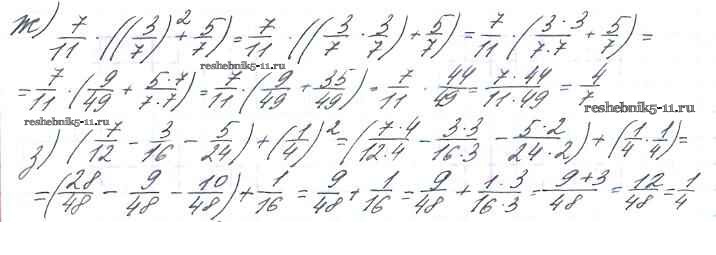 ж) 7/11 · ((3/7)² + 5/7) = 7/11 · ((3/7 · 3/7) + 5/7) = 7/11 · (3·3/7·7 + 5/7) =
reshebnik5-11.ru
= 7/11 · (9/49 + 5·7/7·7) = 7/11 · (9/49 + 35/49) = 7/11 · 44/49 = 7·44/11·49 = 4/7
reshebnik5-11.ru
reshebnik5-11.ru
з) (7/12 - 3/16 - 5/24) + (1/4)² = (7·4/12·4 - 3·3/16·3 - 5·2/24·2) + (1/4 · 1/4) =
= (28/48 - 9/48 - 10/48) + 1/16 = 9/48 + 1/16 = 9/48 + 1·3/16·3 = 9+3/48 = 12/48 = 1/4